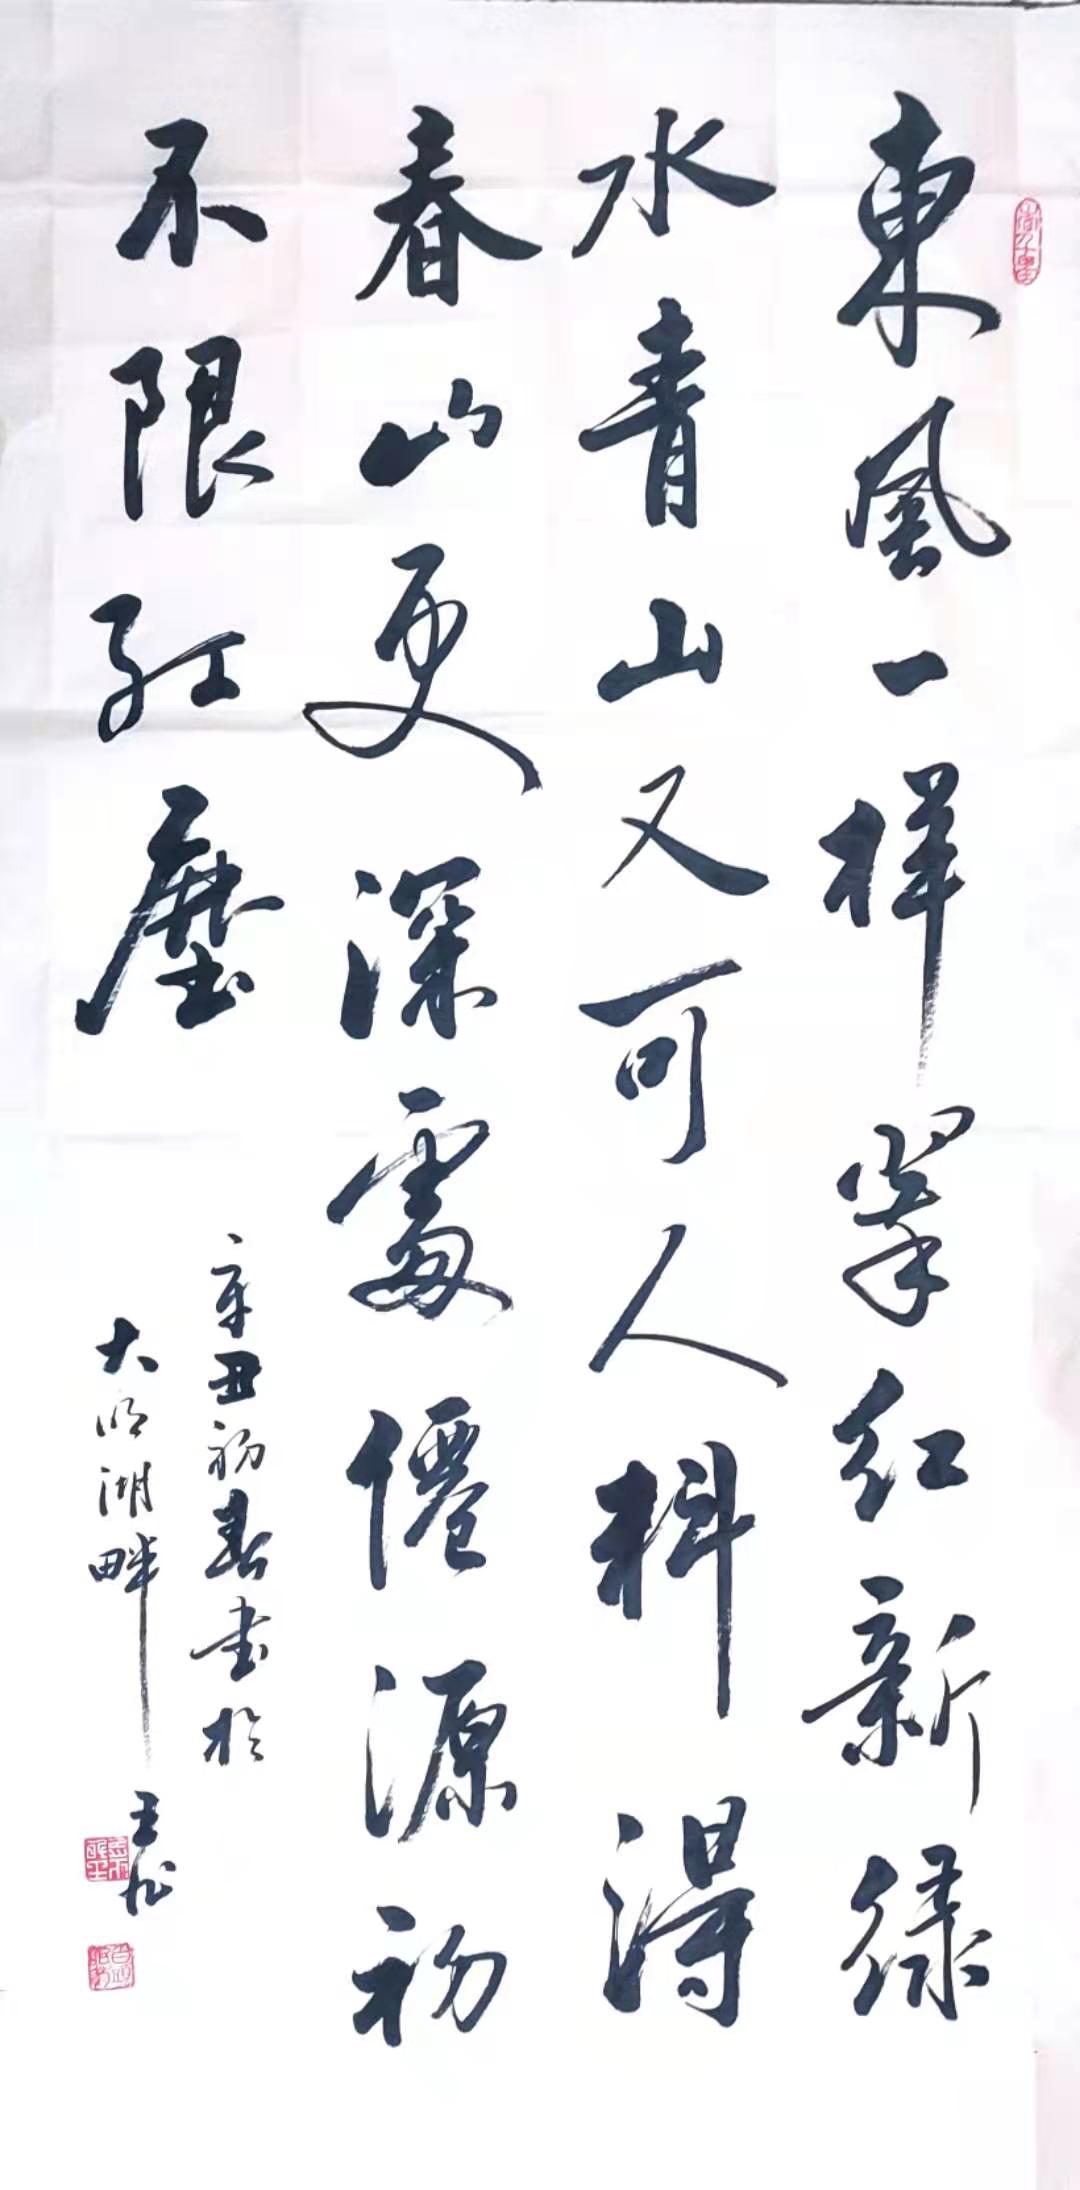 東風一样翠红新绿
水青山又可人料得
春山更深處僊源初
不限红塵
辛丑初春書於
大明湖畔